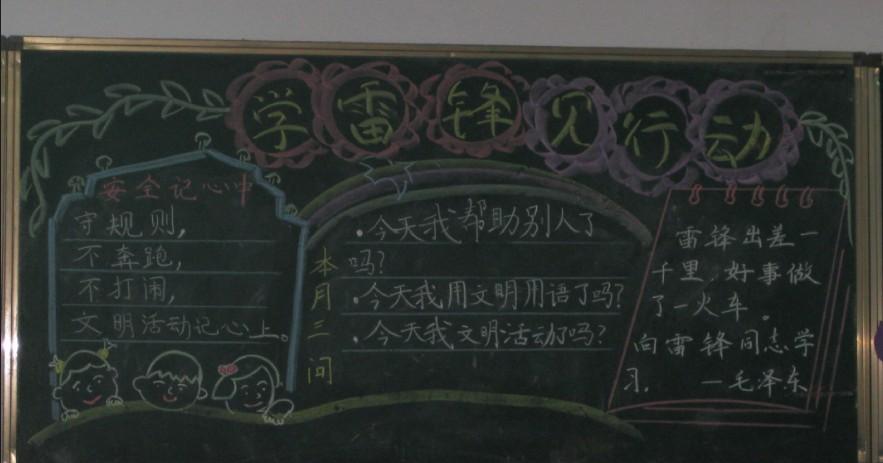 学雷锋见行动
安全记心中
守规则,
不奔跑,
不打闹,
文明活动记心上。
本月三问
·今天我帮助别人了
吗?
·今天我用文明用语了吗?
·今天我文明活动了吗?
雷锋出差一
千里,好事做
了一火车。
向雷锋同志学
习。 —毛泽东